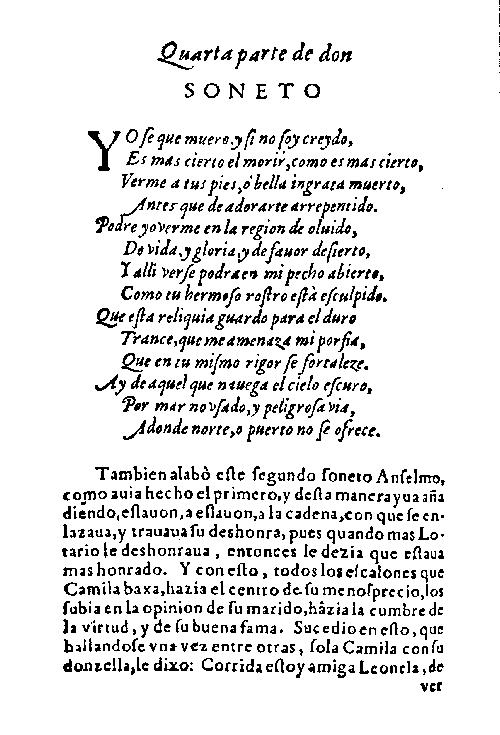 Quarta parte de don
SONETO
YO ſe que muero, y ſi no ſoy creydo,
Es mas cierto el morir, como es mas cierto,
Verme a tus pies, ò bella ingrata muerto,
Antes que de adorarte arrepentido.
Podre yo verme en la region de oluido,
De vida, y gloria, y de fauor deſierto,
Y alli verſe podra en mi pecho abierto,
Como tu hermoſo roſtro eſtà eſculpido.
Que eſta reliquia guardo para el duro
Trance, que me amenaza mi porfia,
Que en tu miſmo rigor ſe fortaleze.
Ay de aquel que nauega el cielo eſcuro,
Por mar no vſado, y peligroſa via,
Adonde norte, o puerto no ſe ofrece.
Tambien alabò eſte ſegundo ſoneto Anſelmo,
como auia hecho el primero, y deſta manera yua aña
diendo, eſlauon, a eſlauon, a la cadena, con que ſe en-
lazaua, y trauaua ſu deshonra, pues quando mas Lo-
tario le deshonraua, entonces le dezia que eſtaua
mas honrado. Y con eſto, todos los eſcalones que
Camila baxa, hazia el centro de ſu menoſprecio, los
ſubia en la opinion de ſu marido, hâzia la cumbre de
la virtud, y de ſu buena fama. Sucedio en eſto, que
hallandoſe vna vez entre otras, ſola Camila con ſu
donzella, le dixo: Corrida eſtoy amiga Leonela, de
ver